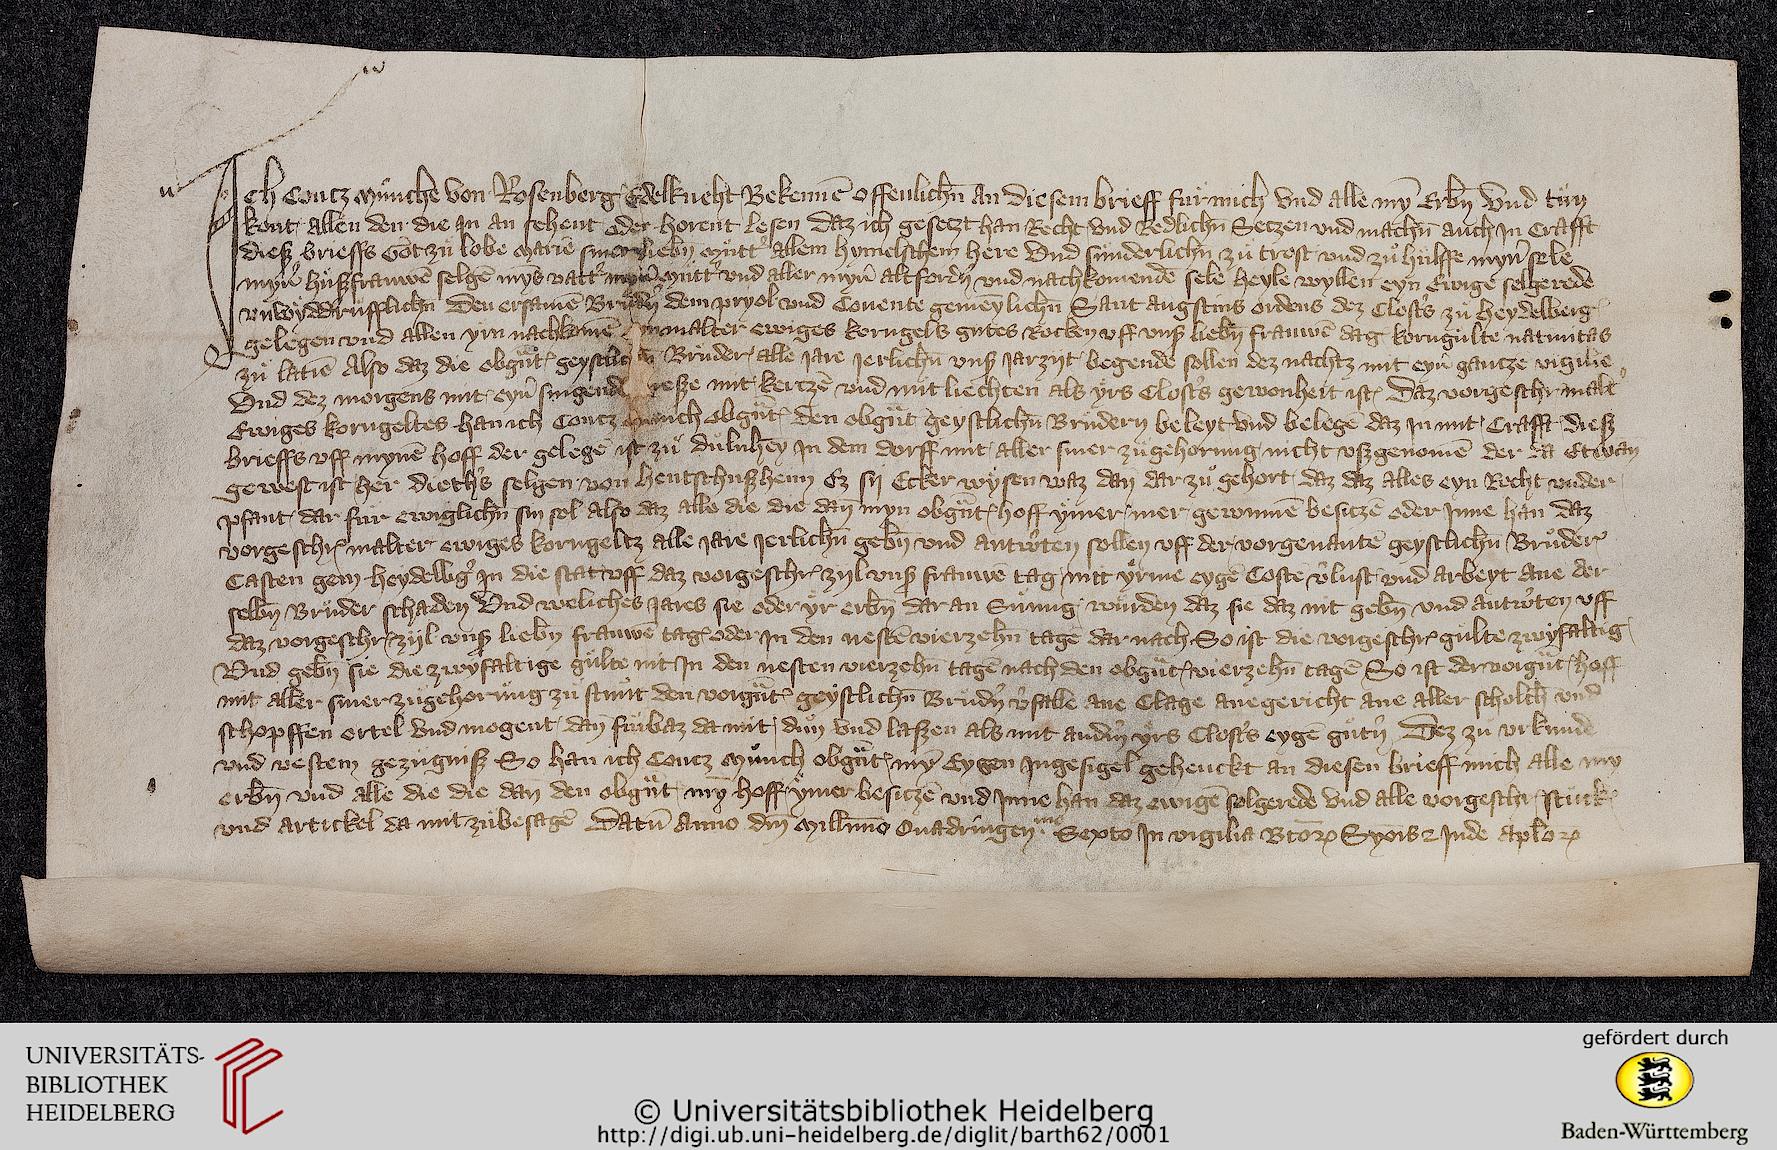 Ich Contz Münche von Rosenberg Edelkneht Bekenne offenlichn An diesem brieff fur mich vnd alle myn Erbn vnd tun
kont allen den die In an sehent oder horent lesen Daz ich gesetzt han Recht vnd Redlichn Setzen vnd machn auch In Crafft
dieß brieffs Got zu lobe Marie siner liebn mutter allem hymelschem here Vnd sunderlichn zu trost vnd zu hulffe myner sele
myner hußfrauwen selgen mys vatters myner mutter vnd aller myner altfordern vnd nachkomenden sele heyle wyllen eyn Ewige selgerede
vnwydderufflichn Den ersamen Brudern dem pryol vnd Convente gemeynlichn Sant augstins ordens dez Closters zu Heydelberg
gelegen vnd allen yrn nachkomen malter ewiges korngelts gutes Rocken vff vnß liebn frauwen dag korngulte natiuitas
zu latin Also daz die obgnt geystlichn Bruder alle Jare Jerlichn vnß Jarzyt begende sollen dez nachtz mit eyner gantze vigilie
Vnd dez morgens mit eyner singenden meße mit kertzen vnd mit liechten als yrs Closters gewonheit ist Daz vorgeschr malter
Ewiges korngeltes han ich Contz Münch obgnt den obgnt geystlichn Brudern beleyt vnd belegen daz In mit Crafft dieß
brieffs vff mynen hoff der gelegen ist zu In dem dorff mit aller siner zugehorung nicht vßgenomen der da Etwan
gewest ist her diethers selgen von Hentschußheim Ez sy Ecker wysen waz dan dar zu gehort daz daz alles eyn Recht vnder
pfant dar fur ewiglichn sin sol Also daz alle die die dan myn obgnt hoff ymer mer gewinnen besitzen oder Inne han daz
vorgeschr malter ewiges korngeltz alle Jare Jerlichn gebn vnd antworten sollen vff der vorgenanten geystlichn Bruder
Casten gein Heydelbg In die stat vff daz vorgeschr zyl vnß frauwen tag mit yrme eygen Coste verlust vnd arbeyt ane der
selbn Bruder schaden Vnd weliches Jares sie oder yr erbn dar an Sumig wurden daz sie daz nit gebn vnd antworten vff
daz vorgeschr zyl vnß liebn frauwen tag oder In den nesten vierzehn tage dar nach So ist die vorgeschr gulte zwyfaltig
Vnd gebn sie die zwyfaltige gulte nit In den nesten vierzehn tagen nach den obgnt vierzehn tagen So ist der vorgnt hoff
mit aller siner zugehorung zu stunt den vorgnt geystlichn Brudern verfalle ane Clage ane gericht ane aller scholth vnd
schopffen ortel Vnd mogent dan furbaz da mit dun vnd laßen als mit andern yrs Closters eygen gutern Dez zu vrkunde
vnd vestem gezugniß So han ich Contz Münch obgnt myn Eygen Ingesigel gehenckt an diesen brieff mich alle my
erbn vnd alle die die dan den obgnt myn hoff ymer besitzen vnd Inne han daz ewigen selgerede vnd alle vorgeschr stuck
vnd artickel da mit zu besagen Datum Anno dm Millmo Quadringenmo Sexto In vigilia Btorum Symonis et Jude aplorum
UNIVERSITÄTS-
BIBLIOTHEK
HEIDELBERG
© Universitätsbibliothek Heidelberg
http://digi.ub.uni-heidelberg.de/diglit/barth62/0001
gefördert durch
Baden-Württemberg